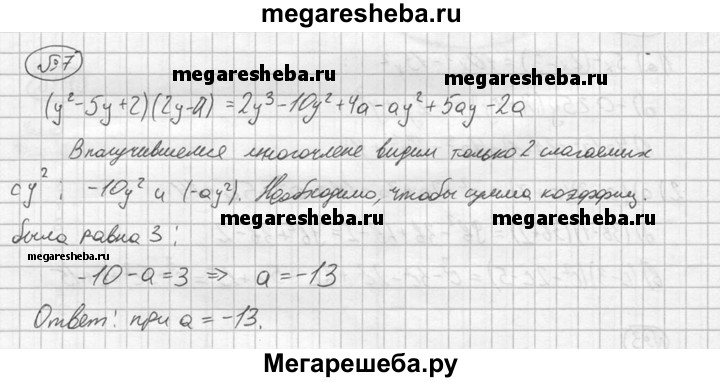 megaresheba.ru
№37
megaresheba.ru
(y²-5y+2)(2y-a)=2y³-10y²+4a-ay²+5ay-2a
В получившемся многочлене видим только 2 слагаемых
с y²: -10y² и (-ay²). Необходимо, чтобы сумма коэффиц.
megaresheba.ru
megaresheba.ru
была равна 3:
megaresheba.ru
-10-a=3 ⇒ a=-13
Ответ: при a=-13.
Мегарешеба.ру